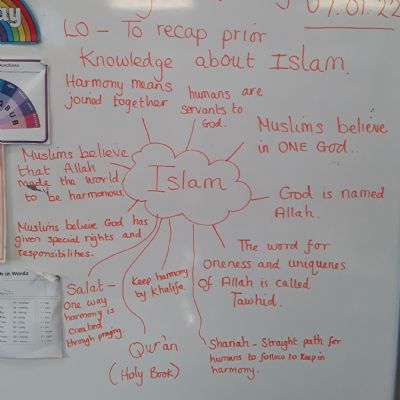 07.01.22
LO - To recap prior
Knowledge about Islam.
Harmony means
joined together
humans are
servants to
God.
Muslims believe
in ONE God.
Muslims believe
that Allah
made the world
to be harmonious.
Islam
God is named
Allah.
Muslims believe God has
given special rights and
responsibilities.
The word for
oneness and uniquenes
of Allah is called
Tawhid.
Salat -
One way
harmony is
created
through praying.
Keep harmony
by Khalifa.
Qur'an
(Holy Book)
Shariah - Straight path for
humans to follow to keep in
harmony.